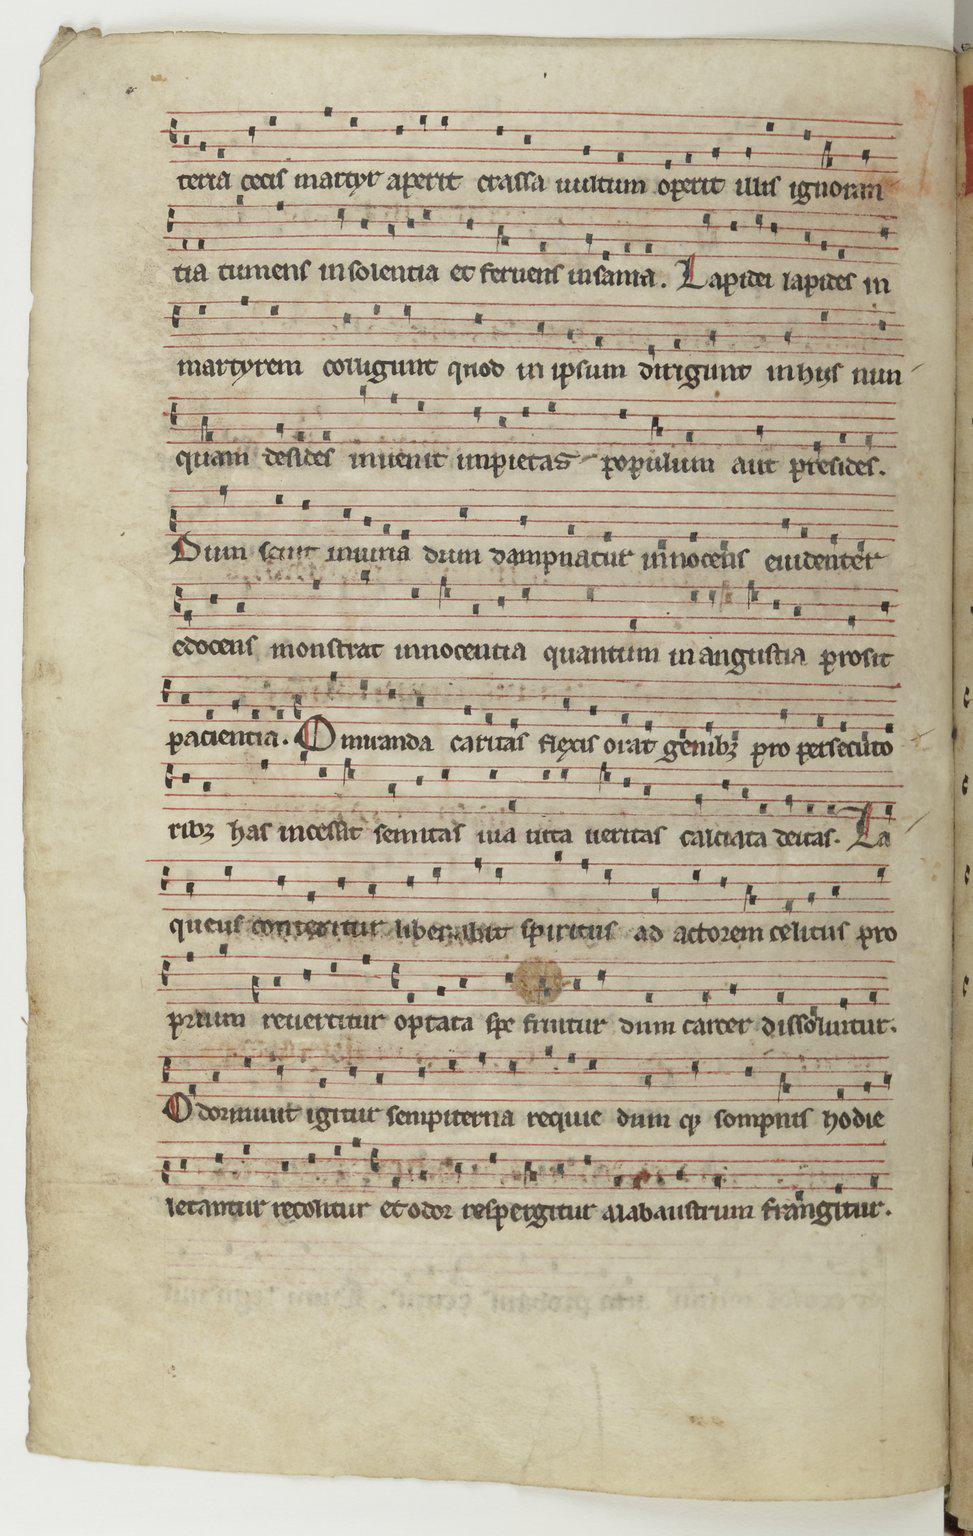 teria cecis martyr aperit crassa uultum operit illis ignoran
tia tumens insolentia et feruens insania. Lapidei lapides in
martyrem corrigunt quod in ipsum dirigunt in hijs nun
quam desides inuenit impietas populum aut presides.
Dum scint iniuria dum dampnatur innocens euidenter
edocens monstrat innocentia quantum in angustia prosit
paciencia. O miranda caritas flexis orat genibꝫ pro persecuto
ribꝫ has incessit semitas uia uita ueritas calciata deitas. La
queus conteritur liberabit spiritus ad actorem celitus pro
prium reuertitur optata spe fruitur dum carcer dissoluitur.
Odormiuit igitur sempiterna requie dum qꝫ sompnis hodie
letantur recolitur et odor respergitur alabaustrum frangitur.